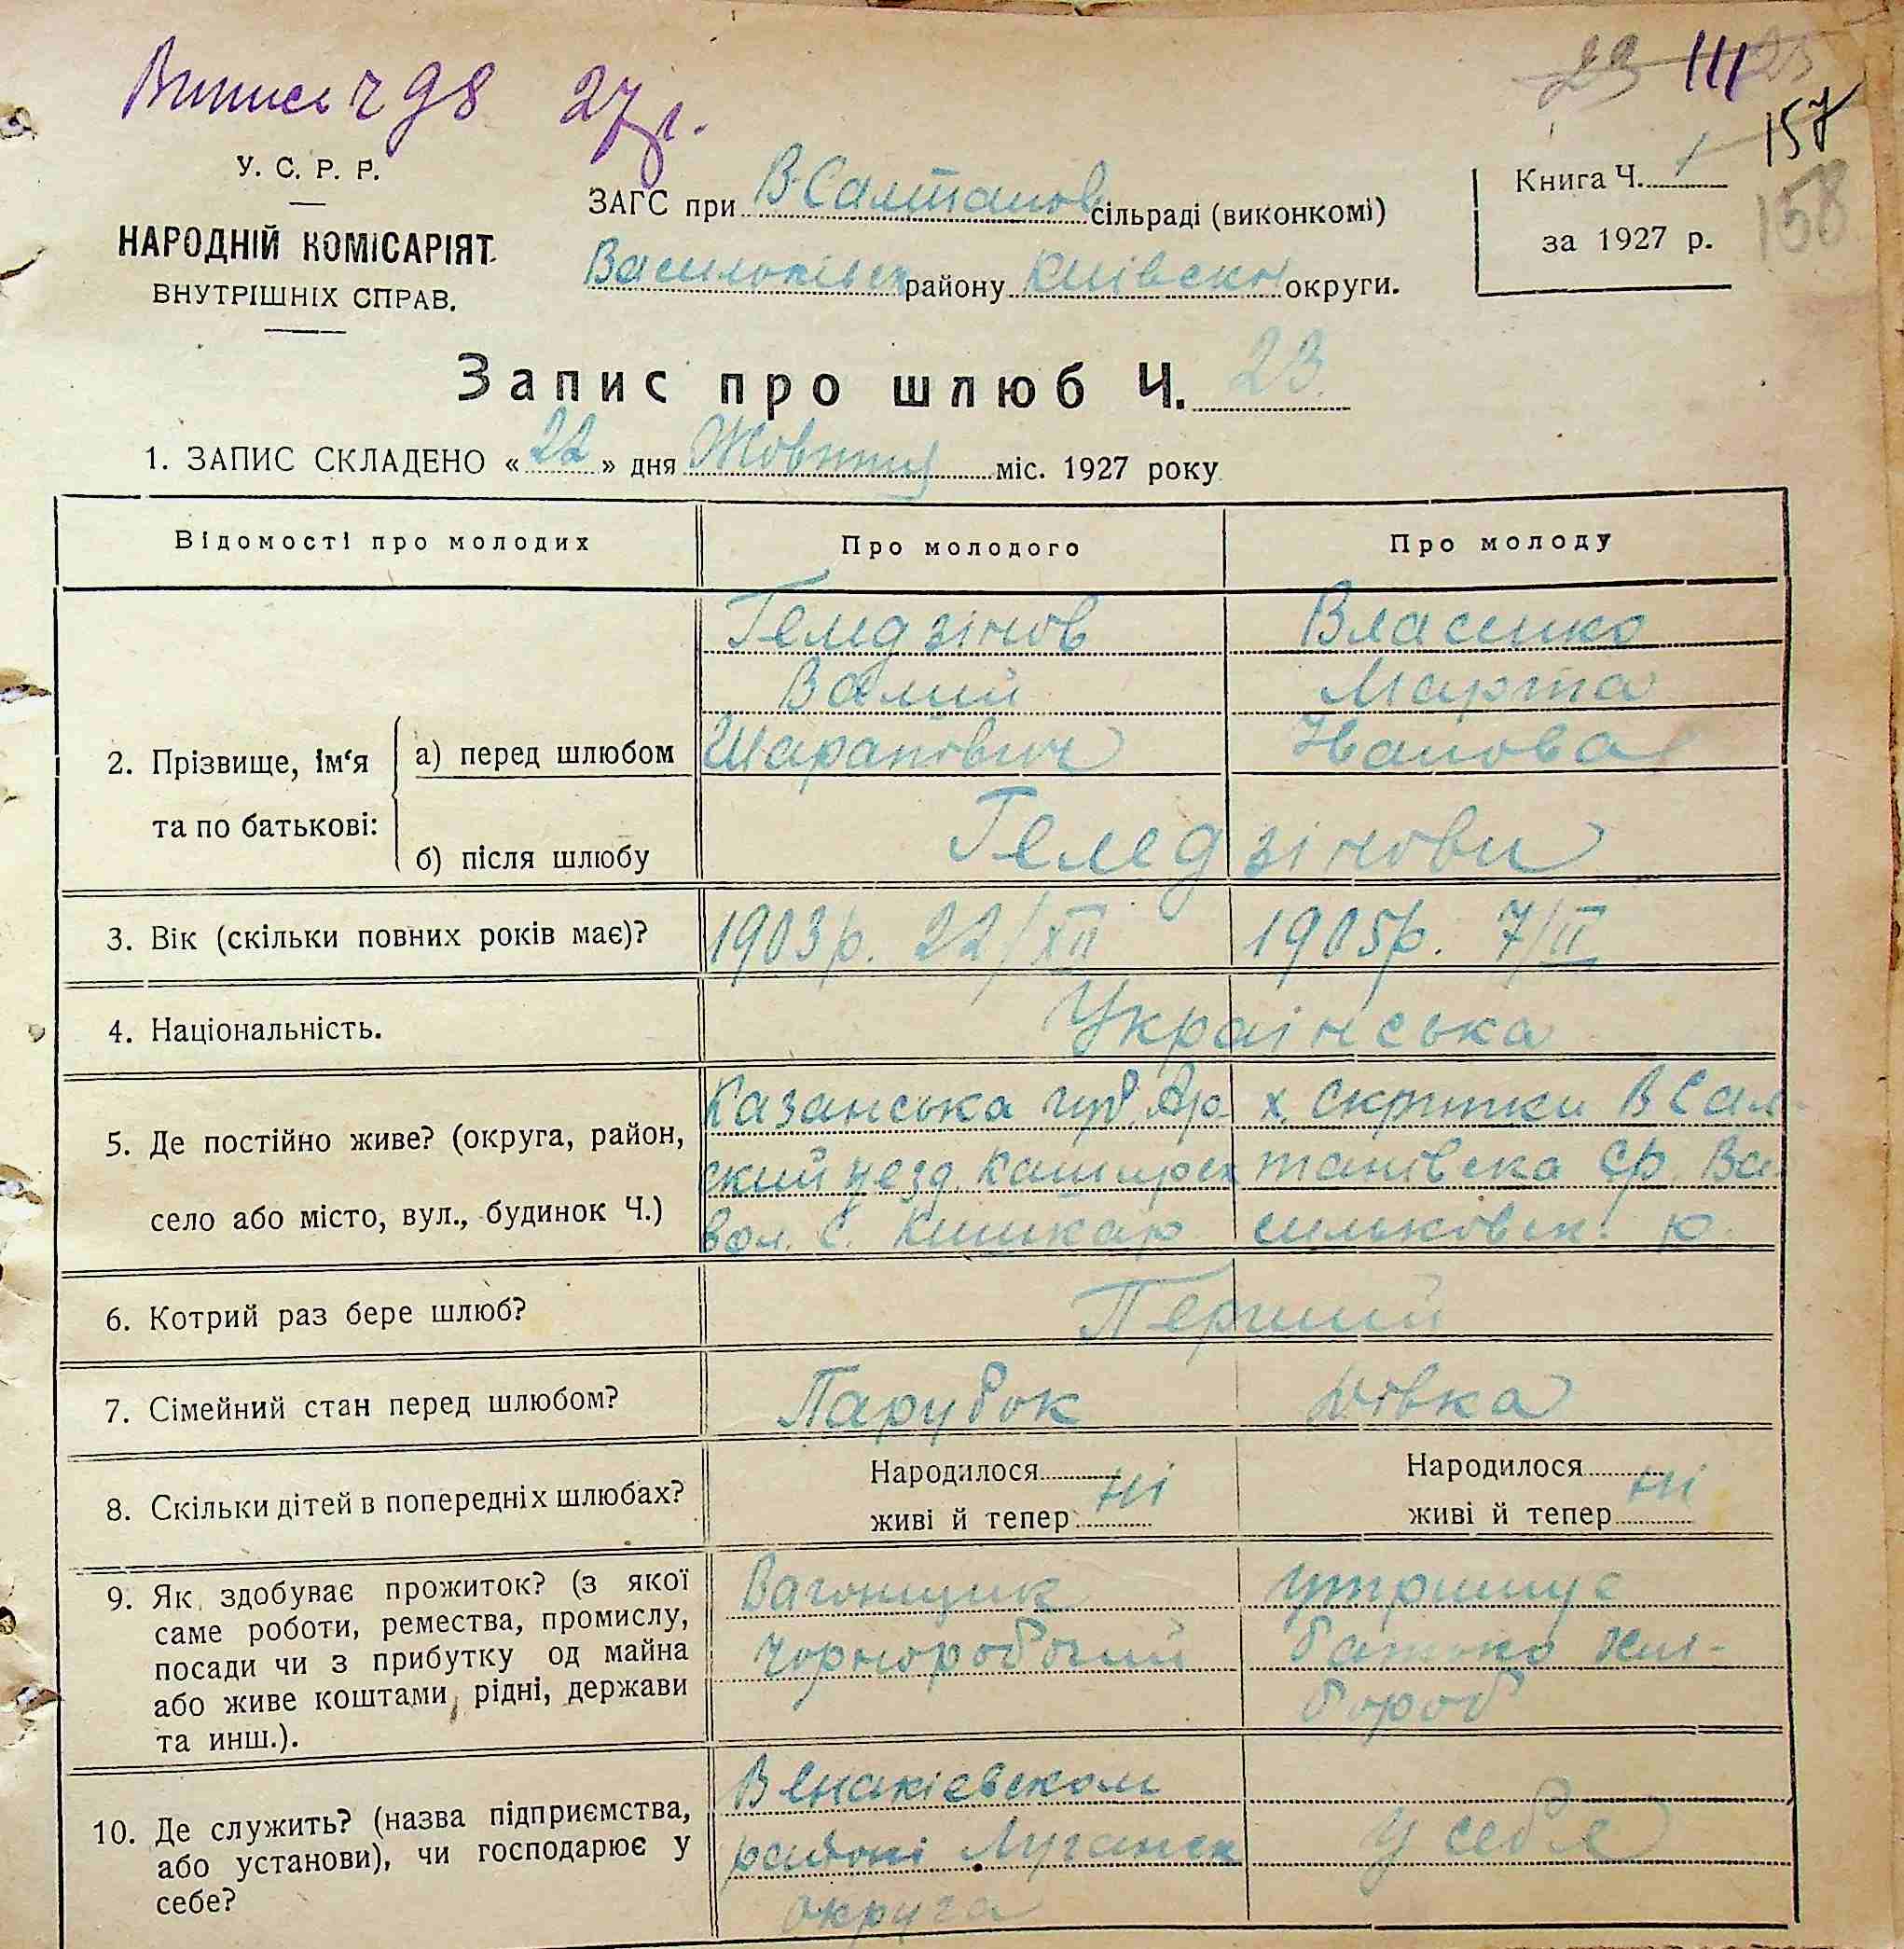 Випись ч 98 27 р.
23 111 25
157
158
У. С. Р. Р.
НАРОДНІЙ КОМІСАРІЯТ
ВНУТРІШНІХ СПРАВ.
ЗАГС при В-Салтанов сільраді (виконкомі)
Васильківськ району Київськ округи.
Книга Ч. 1
за 1927 р.
Запис про шлюб Ч. 23
1. ЗАПИС СКЛАДЕНО «22» дня Жовтня міс. 1927 року
Відомості про молодих Про молодого Про молоду
2. Прізвище, ім'я та по батькові:
а) перед шлюбом
Гемедзінов Власенко
Валий Марта
Шарапович Іванова
б) після шлюбу Гемедзінови
3. Вік (скільки повних років має)? 1903р. 22/XII 1905р. 7/II
4. Національність. Українська
5. Де постійно живе? (округа, район,
село або місто, вул., будинок Ч.)
Казанська губ. Ар- х. Скритки В Сал-
ский уезд. танівська ср. Ва-
вол. с. Кишкар сильковск. ю.
6. Котрий раз бере шлюб? Перший
7. Сімейний стан перед шлюбом? Парубок Дівка
8. Скільки дітей в попередніх шлюбах?
Народилося Народилося
живі й тепер ні живі й тепер ні
9. Як здобуває прожиток? (з якої
саме роботи, ремества, промислу,
посади чи з прибутку од майна
або живе коштами рідні, держави
та инш.).
Вагонщик утримує
Чорноробочий батько хлі-
бороб
10. Де служить? (назва підприємства,
або установи), чи господарює у
себе?
В Єнакієвском
районі Луганск у себе
округа